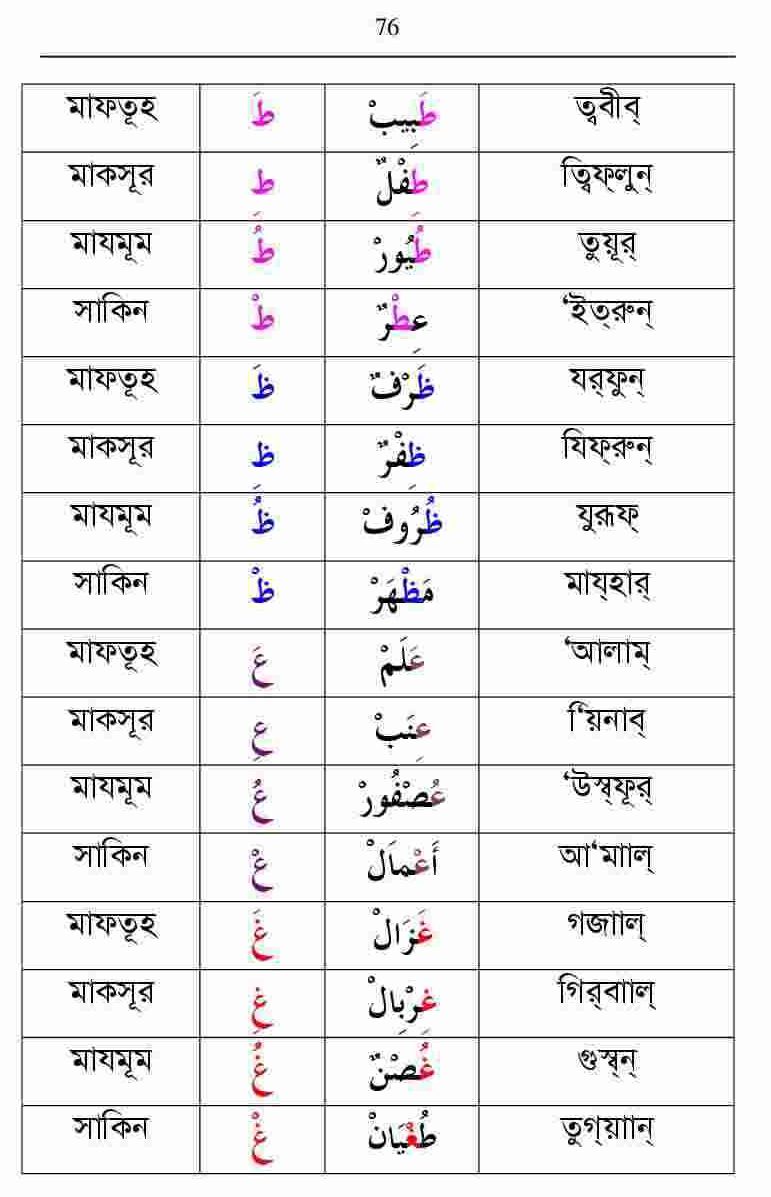 76
মাফতূহ طَ طَبِيبْ ত্ববীব্
মাকসূর طِ طِفْلٌ ত্বিফ্লুন্
মাযমূম طُ طُيُورْ তুয়ূর্
সাকিন طْ عِطْرٌ ‘ইত্রুন্
মাফতূহ ظَ ظَرْفٌ যর্ফুন্
মাকসূর ظِ ظِفْرٌ যিফ্রুন্
মাযমূম ظُ ظُرُوفْ যুরূফ্
সাকিন ظْ مَظْهَرْ মায্হার্
মাফতূহ عَ عَلَمْ ‘আলাম্
মাকসূর عِ عِنَبْ ‘য়িনাব্
মাযমূম عُ عُصْفُورْ ‘উস্ব্ফূর্
সাকিন عْ أَعْمَالْ আ‘মাাল্
মাফতূহ غَ غَزَالْ গজাাল্
মাকসূর غِ غِرْبِالْ গির্বাাল্
মাযমূম غُ غُصْنٌ গুস্ব্ন্
সাকিন غْ طُغْيَانْ তুগ্য়াান্